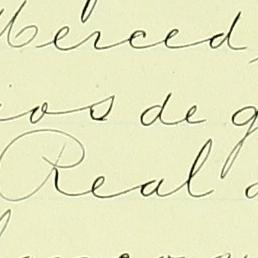 Merced,
ios de g
Real